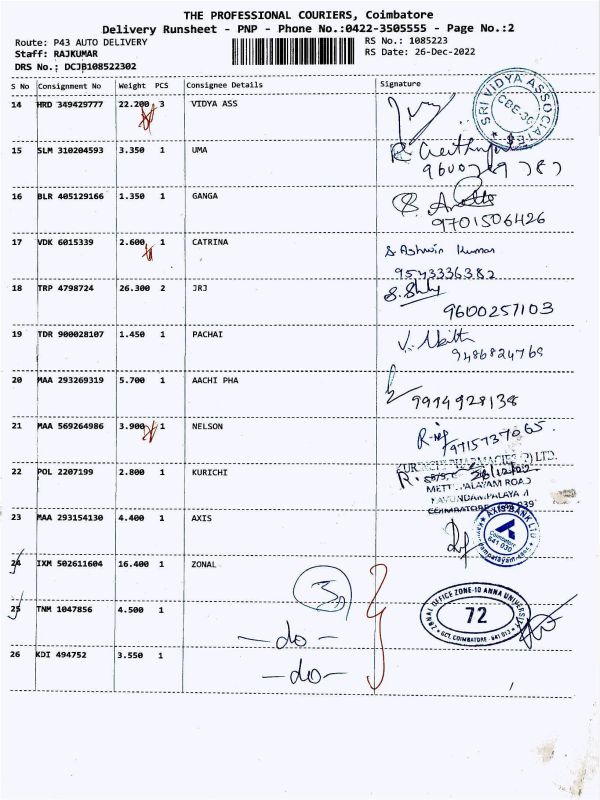 THE PROFESSIONAL COURIERS, Coimbatore
Delivery Runsheet - PNP - Phone No.:0422-3505555 - Page No.:2
Route: P43 AUTO DELIVERY
RS No.: 1085223
Staff: RAJKUMAR
RS Date: 26-Dec-2022
DRS No.: DCJB108522302
S No Consignment No Weight PCS Consignee Details Signature
14 HRD 349429777 22.200 3 VIDYA ASS
SRI VIDYA ASSOCIATES
CBE-30
15 SLM 310204593 3.350 1 UMA
16 BLR 405129166 1.350 1 GANGA
9701506426
17 VDK 6015339 2.600 1 CATRINA
S Ashwin Kumar
9543336382
18 TRP 4798724 26.300 2 JRJ
9600257103
19 TDR 900028107 1.450 1 PACHAI
9486824769
20 MAA 293269319 5.700 1 AACHI PHA
9994928138
21 MAA 569264986 3.900 1 NELSON
9715737065.
22 POL 2207199 2.800 1 KURICHI
23 MAA 293154130 4.400 1 AXIS
AXIS BANK LTD
Coimbatore
641 030
24 IXM 502611604 16.400 1 ZONAL
25 TNM 1047856 4.500 1
ZONAL OFFICE ZONE-10 ANNA UNIVERSITY
72
GCT, COIMBATORE - 641 013
-do-
26 KDI 494752 3.550 1
-do-